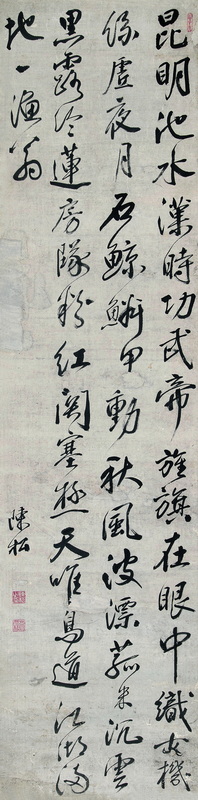 昆明池水漢時功武帝旌旗在眼中織女機
絲虛夜月石鯨鱗甲動秋風波漂菰米沉雲
黑露冷蓮房隊粉紅関塞極天唯鳥道江湖滿
地一漁翁
陳松